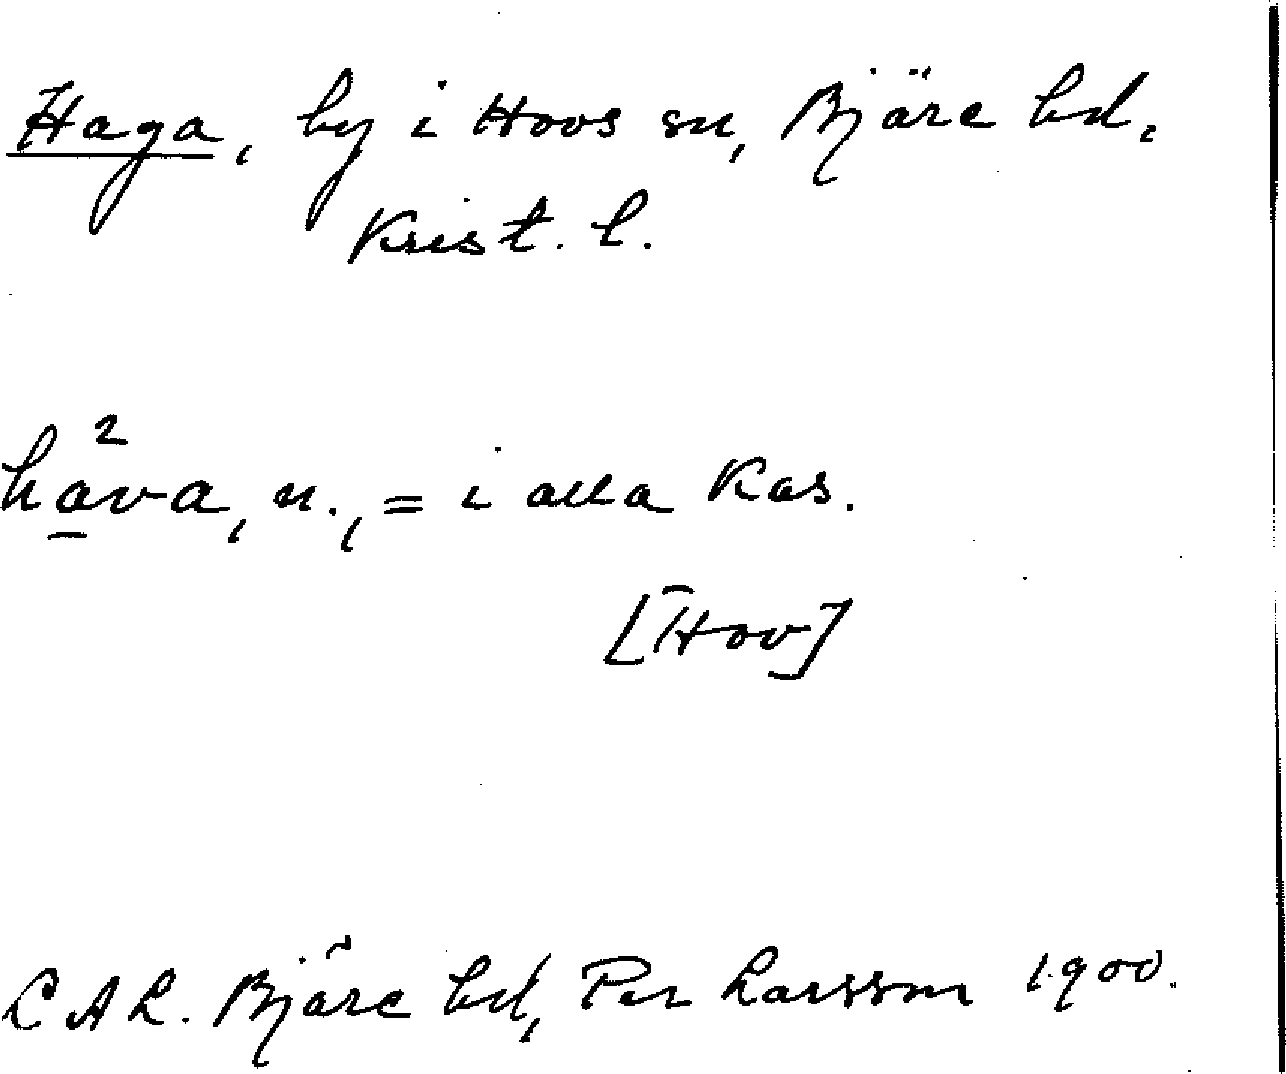 Haga, by i Hovs sn, Bjäre hd,
Krist. l.
2
håva, n., = i alla kas.
[Hov]
L A L. Bjäre hd, Per Larsson 1900.